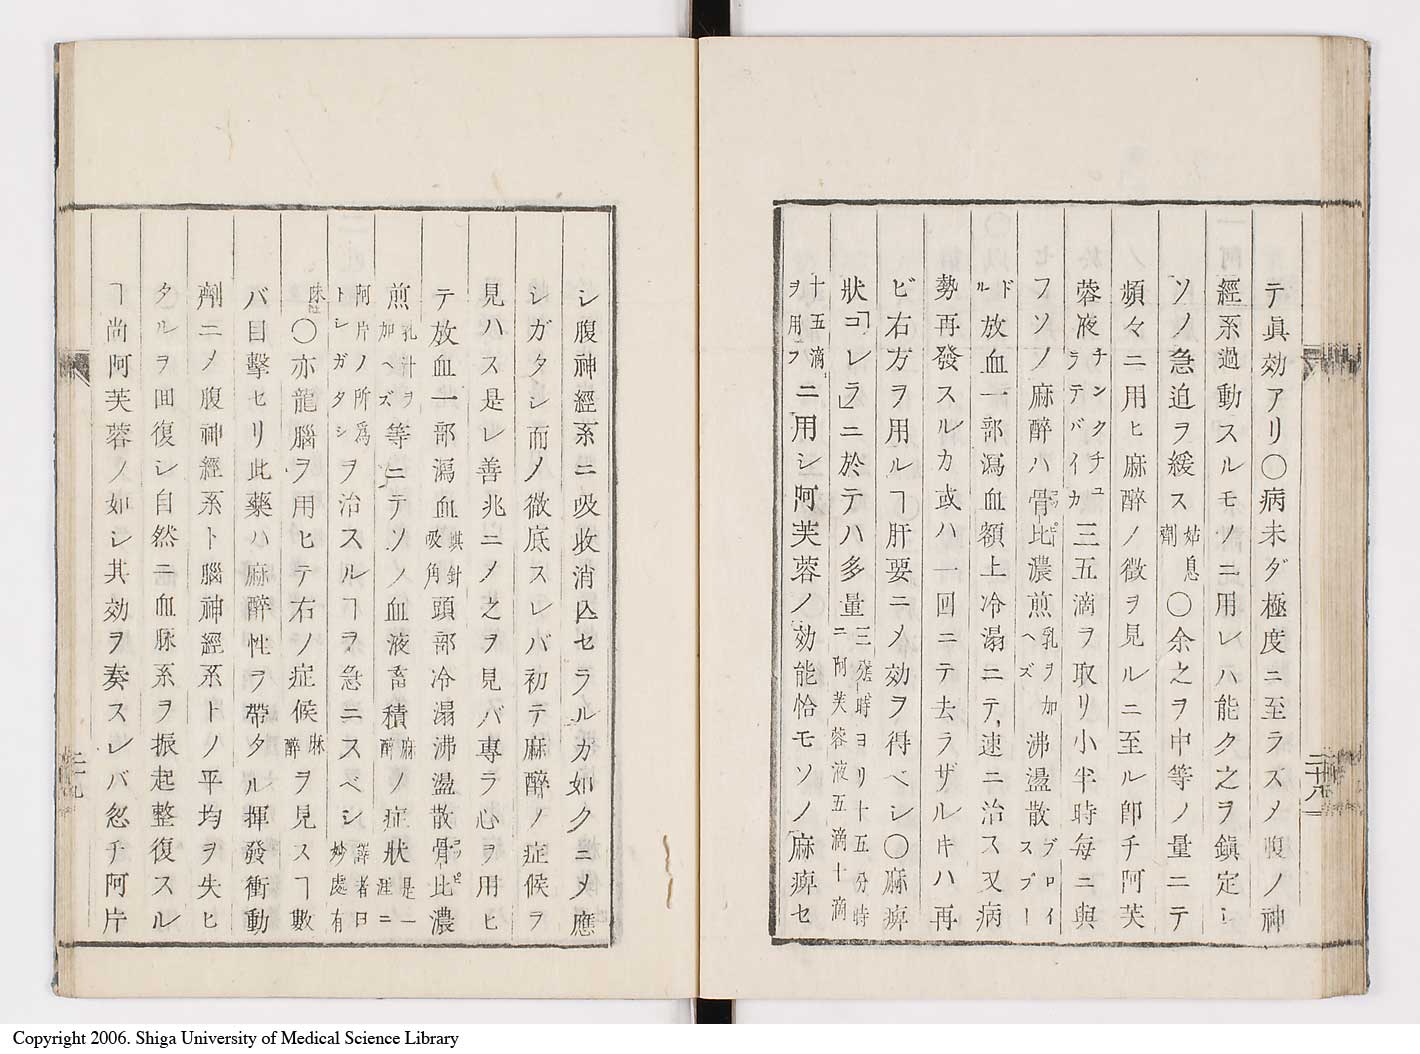 テ眞効アリ〇病未ダ極度ニ至ラズメ腹ノ神
經系過動スルモノニ用レハ能ク之ヲ鎭定シ
ソノ急迫ヲ緩ス姑息劑〇余之ヲ中等ノ量ニテ
頻々ニ用ヒ麻醉ノ徴ヲ見ルニ至ル卽チ阿芙
蓉液チンクチュラテバイカ三五滴ヲ取リ小半時每ニ與
フソノ麻醉ハ骨比濃煎乳ヲ加ヘズ沸盪散ブロイスブー
ドル放血一部瀉血額上冷溻ニテ速ニ治ス又病
勢再發スルカ或ハ一回ニテ去ラザルキハ再
ビ右方ヲ用ルヿ肝要ニメ効ヲ得ベシ〇麻痺
狀「コレラ」ニ於テハ多量三發時ヨリ十五分時ニ阿芙蓉液五滴十滴
十五滴ヲ用フニ用シ阿芙蓉ノ効能恰モソノ麻痺セ
二十八
シ腹神經系ニ吸收消込セラルカ如クニメ應
シガタシ而ノ徹底スレバ初テ麻醉ノ症候ヲ
見ハス是レ善兆ニメ之ヲ見バ專ラ心ヲ用ヒ
テ放血一部瀉血蜞針吸角頭部冷溻沸盪散骨比濃コツピ
煎乳汁ヲ加ヘズ等ニテソノ血液畜積麻醉ノ症狀是一涯ニ
阿片ノ所爲トシガタシヲ治スルヿヲ急ニスベシ譯者曰妙處有
〇亦龍腦ヲ用ヒテ右ノ症候麻醉ヲ見スヿ數
バ目擊セリ此藥ハ麻醉性ヲ帶タル揮發衝動
劑ニメ腹神經系ト腦神經系トノ平均ヲ失ヒ
タルヲ回復シ自然ニ血脉系ヲ振起整復スル
ヿ尚阿芙蓉ノ如シ其効ヲ奏スレバ忽チ阿片
二十九
Copyright 2006. Shiga University of Medical Science Library